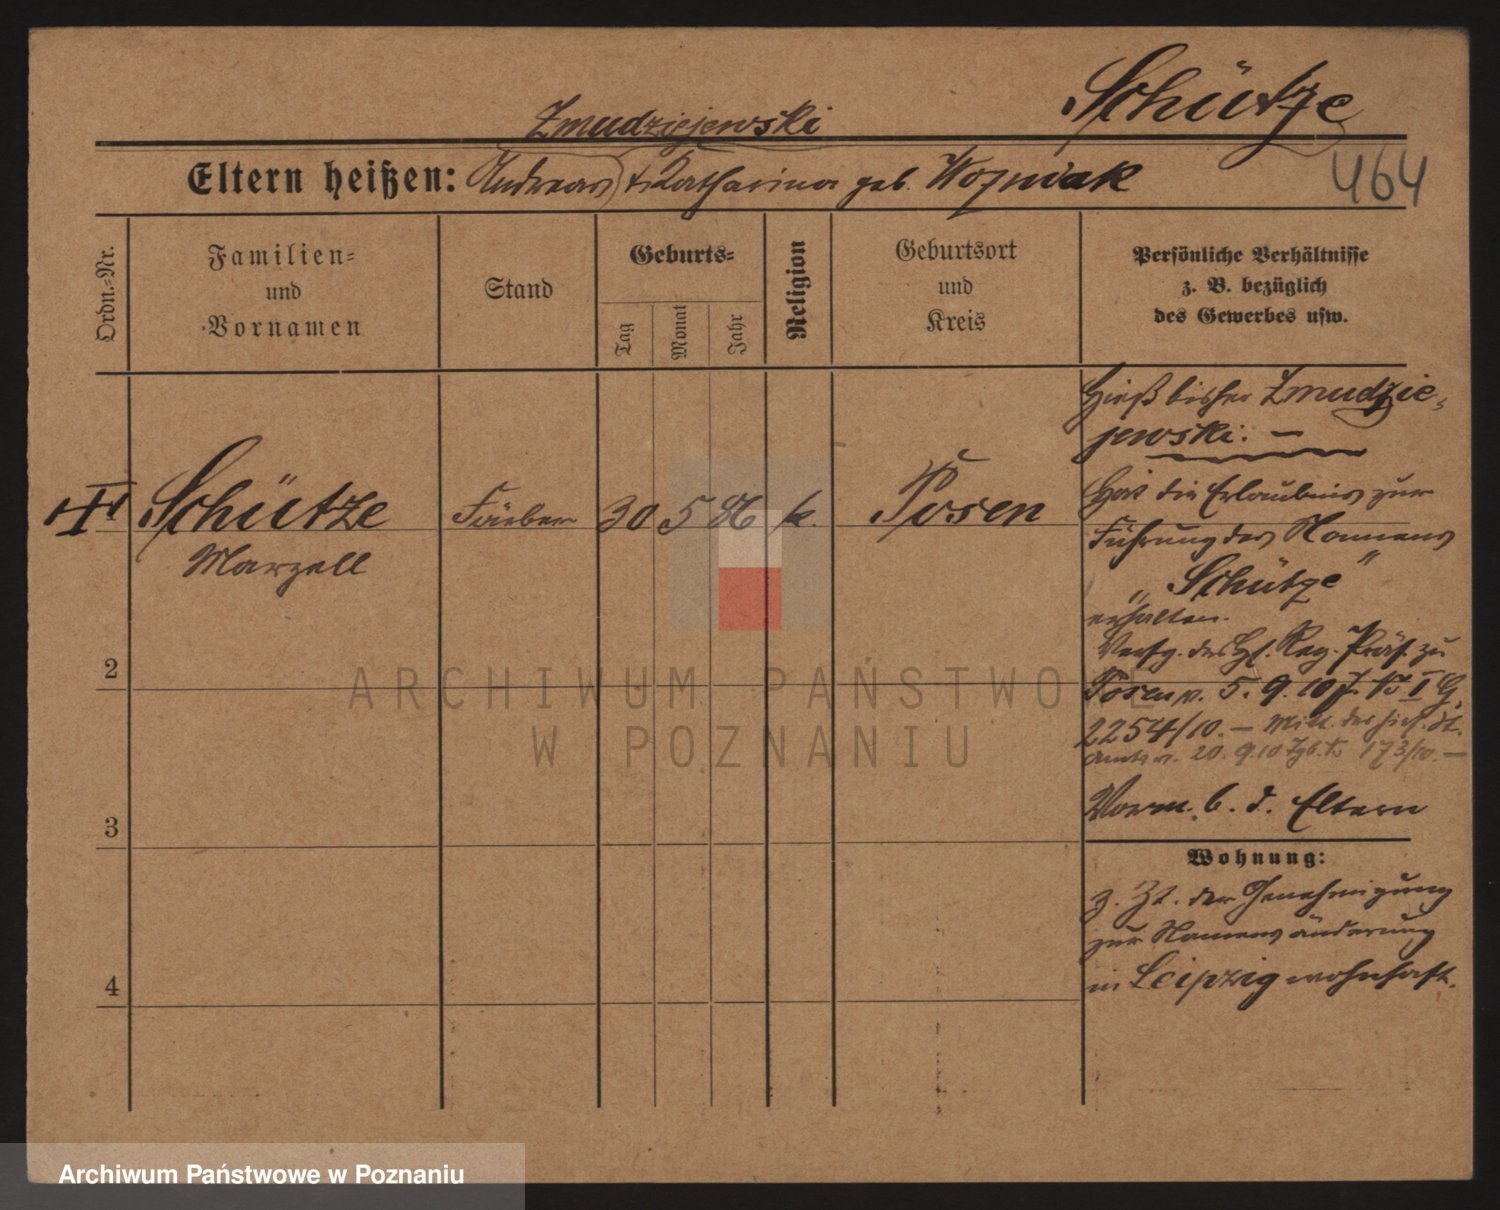 Schütze
Zmudziejewski
Eltern heißen: Andreas u. Katharina geb. Wozniak
464
Ordn.-Nr.
Familien-
und
Vornamen
Stand
Geburts-
Tag
Monat
Jahr
Religion
Geburtsort
und
Kreis
Persönliche Verhältnisse
z. B. bezüglich
des Gewerbes usw.
Hieß bisher Zmudzie-
jewski. —
1 Schütze Färber 30 5 86 k. Posen
Marzell
Hat die Erlaubnis zur
Führung des Namens
„Schütze"
erhalten.
Verfg. des H. Reg. Präs. zu
Posen v. 5.9.10 J. No I G.
2254/10. — Mitt. des
Amts v. 20.9.10 173/10. —
Vorm. b. d. Eltern
2
3
4
Wohnung:
z. Zt. der Genehmigung
zur Namensänderung
in Leipzig wohnhaft.
ARCHIWUM PAŃSTWOWE
W POZNANIU
Archiwum Państwowe w Poznaniu